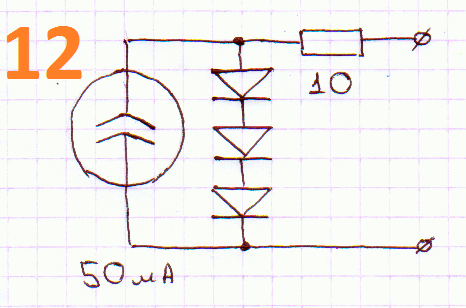 12
10
50 мА